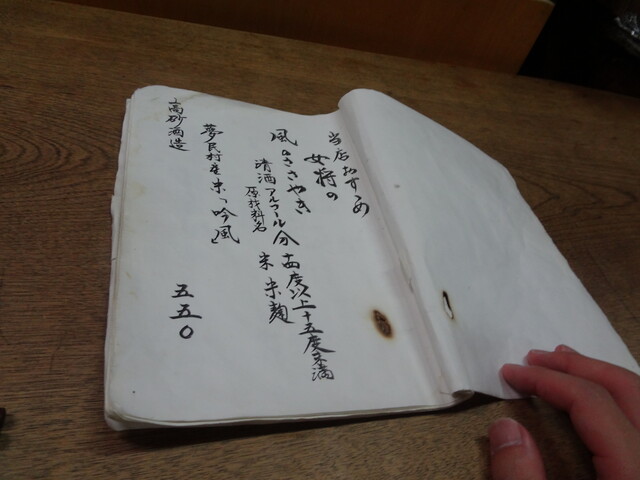 当店おすすめ
女将の
風のささやき
清酒 アルコール分 十四度以上十五度未満
原材料名 米 米麹
夢民村産米「吟風」
高砂酒造
五五〇